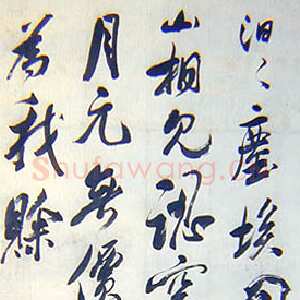 汩〻塵埃
山相見
月元無價
為我賒
Shufawang.C